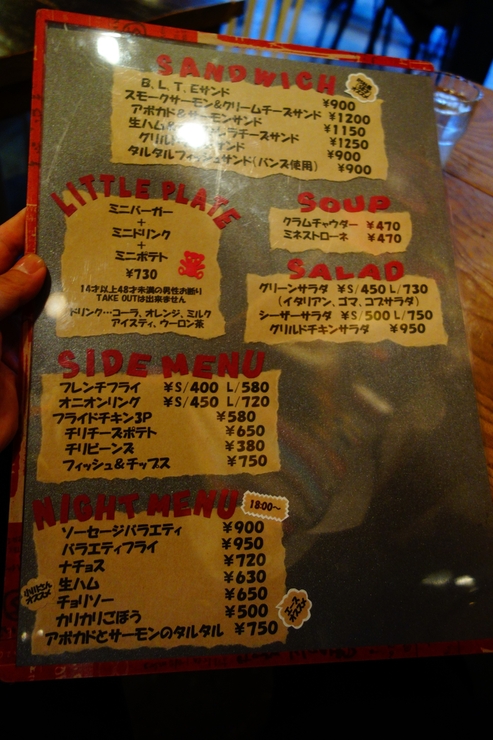 SANDWICH
B.L.T.Eサンド ¥900
スモークサーモン&クリームチーズサンド ¥1200
アボカド&サーモンサンド ¥1150
生ハム& チーズサンド ¥1250
グリル サンド ¥900
タルタルフィッシュサンド(バンズ使用) ¥900
LITTLE PLATE
ミニバーガー
+
ミニドリンク
+
ミニポテト
¥730
14才以上48才未満の男性お断り
TAKE OUTは出来ません
ドリンク…コーラ、オレンジ、ミルク
アイスティ、ウーロン茶
SOUP
クラムチャウダー ¥470
ミネストローネ ¥470
SALAD
グリーンサラダ ¥S/450 L/730
(イタリアン、ゴマ、コブサラダ)
シーザーサラダ ¥S/500 L/750
グリルドチキンサラダ ¥950
SIDE MENU
フレンチフライ ¥S/400 L/580
オニオンリング ¥S/450 L/720
フライドチキン3P ¥580
チリチーズポテト ¥650
チリビーンズ ¥380
フィッシュ&チップス ¥750
NIGHT MENU
18:00~
ソーセージバラエティ ¥900
バラエティフライ ¥950
ナチョス ¥720
生ハム ¥630
チョリソー ¥650
カリカリごぼう ¥500
アボカドとサーモンのタルタル ¥750